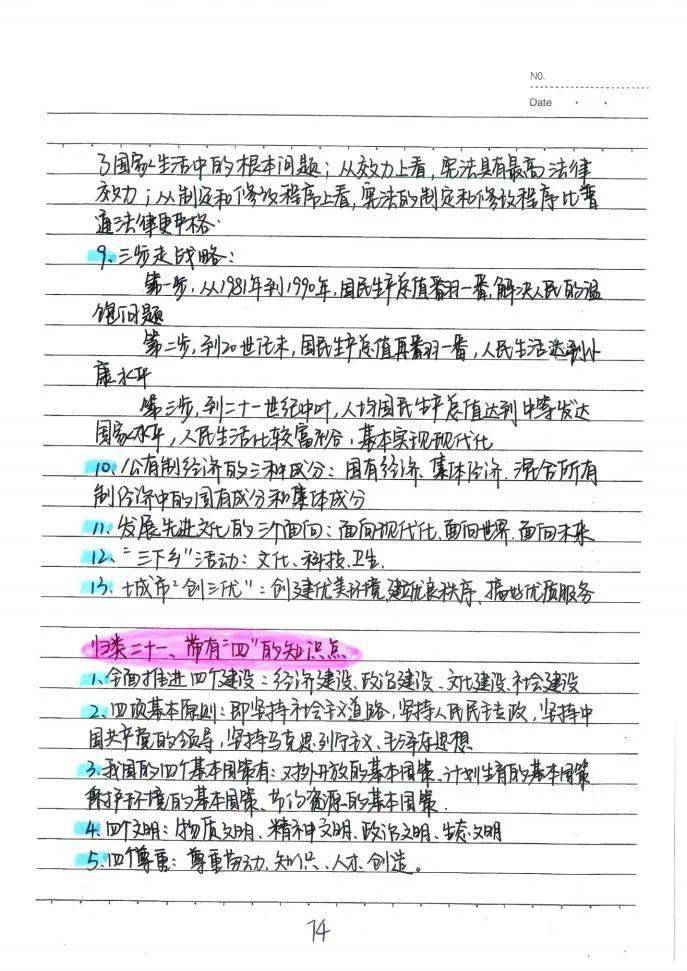 NO.
Date
了国家生活中的根本问题；从效力上看，宪法具有最高法律
效力；从制定和修改程序上看，宪法的制定和修改程序比普
通法律更严格。
9、三步走战略：
第一步，从1981年到1990年，国民生产总值翻一番，解决人民的温
饱问题
第二步，到20世纪末，国民生产总值再翻一番，人民生活达到小
康水平
第三步，到二十一世纪中叶，人均国民生产总值达到中等发达
国家水平，人民生活比较富裕，基本实现现代化
10、公有制经济的三种成分：国有经济、集体经济、混合所有
制经济中的国有成分和集体成分
11、发展先进文化的三个面向：面向现代化、面向世界、面向未来
12、“三下乡”活动：文化、科技、卫生.
13、城市“创三优”：创建优美环境、建优良秩序、搞好优质服务
归类二十一、带有“四”的知识点
1、全面推进四个建设：经济建设、政治建设、文化建设、社会建设
2、四项基本原则：即坚持社会主义道路，坚持人民民主专政，坚持中
国共产党的领导，坚持马克思列宁主义、毛泽东思想
3、我国的四个基本国策有：对外开放的基本国策、计划生育的基本国策
保护环境的基本国策、节约资源的基本国策.
4、四个文明：物质文明、精神文明、政治文明、生态文明
5、四个尊重：尊重劳动、知识、人才、创造。
74